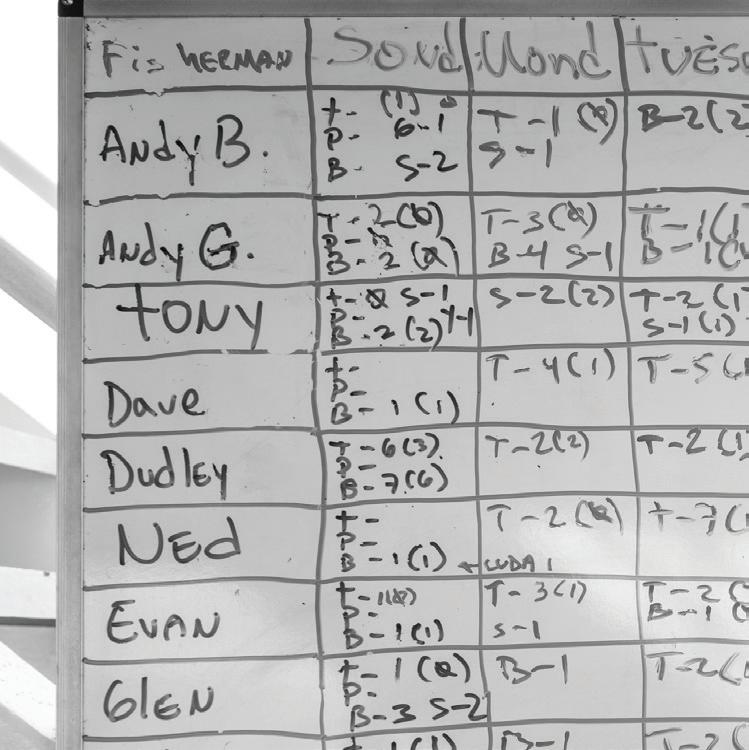 Fisherman Sound Mond Tuesd
Andy B.
T- (1)
P- G-1
B- S-2
T-1
S-1
B-2(2
Andy G.
T-2
P-
B-2
T-3
B-4 S-1
T-1(1
B-1(
Tony
T- S-1
P- Y-1
B-2(2)
S-2(2)
T-2(1
S-1(1)
Dave
T-
P-
B-1(1)
T-4(1)
T-5(
Dudley
T-6(3)
P-
B-7(6)
T-2(2)
T-2(1)
Ned
T-
P-
B-1(1)
T-2
T-7(
Evan
T-
P-
B-1(1)
T-3(1)
S-1
T-2
B-1
Glen
T-1
P-
B-3 S-2
B-1
T-2(
B-1
T-2